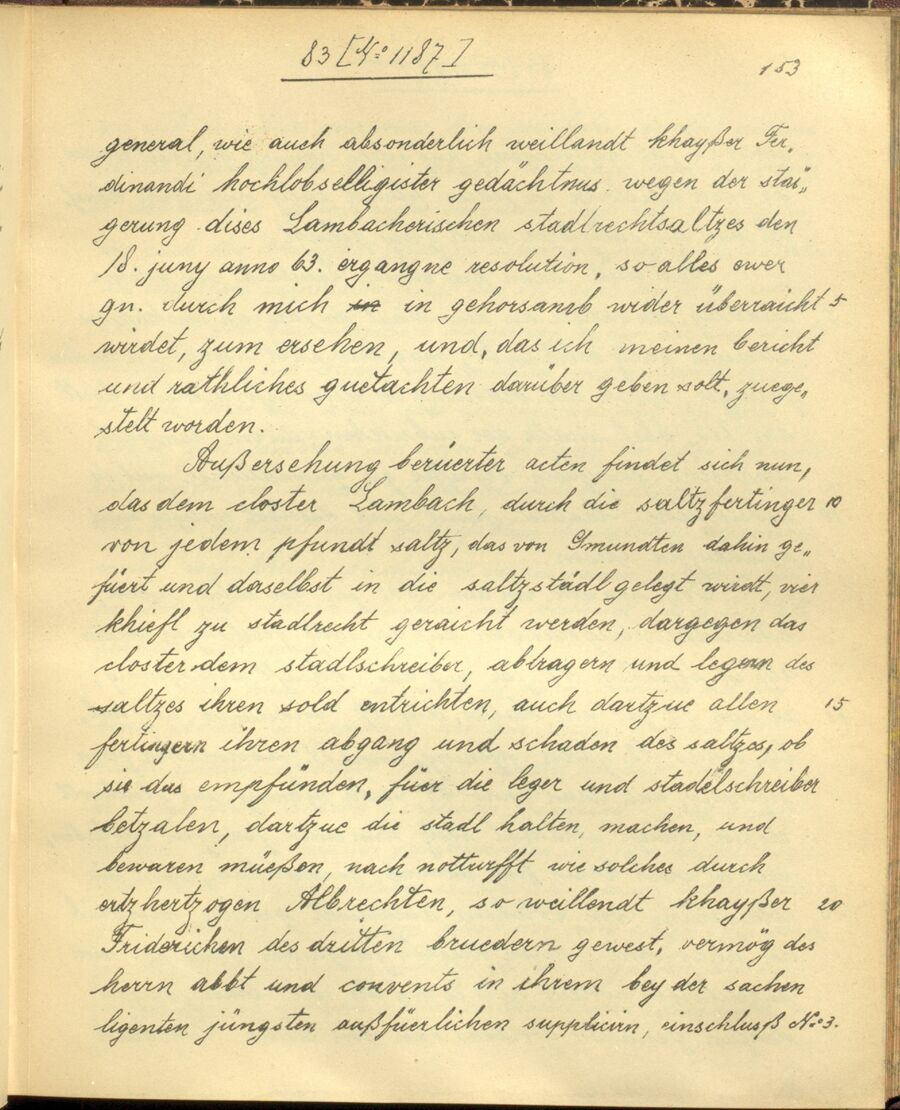 83 [No 1187]
153
general, wie auch absonderlich weillandt khayßer Fer„
dinandi hochlobselligister gedächtnus wegen der stai„
gerung dises Lambacherischen stadlrechtsaltzes den
18. juny anno 63. ergangne resolution, so alles ewer
gn. durch mich in in gehorsamb wider überraicht 5
wirdet, zum ersehen, und, das ich meinen bericht
und räthliches guetachten darüber geben solt, zuege„
stelt worden.
Außersehung berüerter acten findet sich nun,
das dem closter Lambach, durch die saltzfertinger 10
von jedem pfundt saltz, das von Gmundten dahin ge„
füert und daselbst in die saltzstädl gelegt wirdt, vier
khiefl zu stadlrecht geraicht werden, dargegen das
closter dem stadlschreiber, abtragern und legern des
saltzes ihren sold entrichten, auch dartzue allen 15
fertingern ihren abgang und schaden des saltzes, ob
sie das empfünden, füer die leger und stadelschreiber
betzalen, dartzue die stadl halten, machen, und
bewaren müeßen, nach notturfft wie solches durch
ertzhertzogen Albrechten, so weillendt khayßer 20
Friderichen des dritten bruedern gewest, vermög des
herrn abbt und convents in ihrem bey der sachen
ligenten jüngsten außfüerlichen supplicirn, einschlusß No 3.